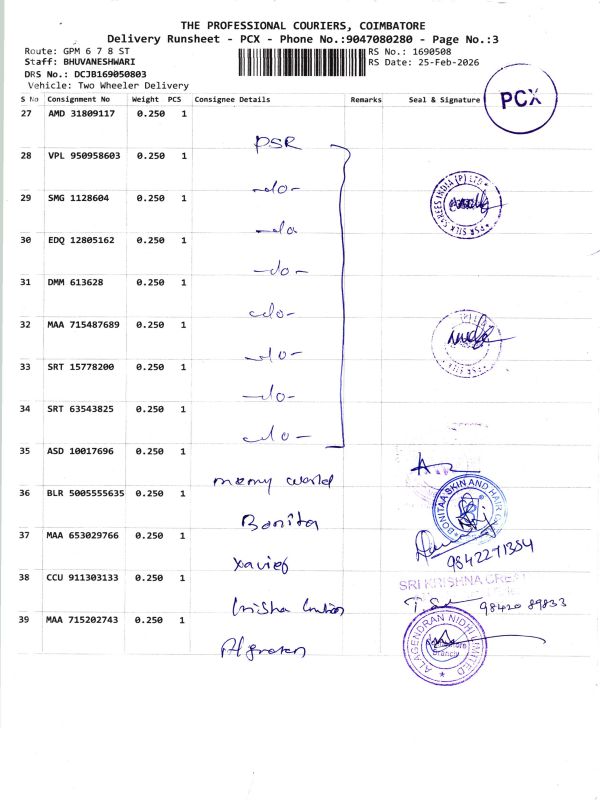 THE PROFESSIONAL COURIERS, COIMBATORE
Delivery Runsheet - PCX - Phone No.:9047080280 - Page No.:3
Route: GPM 6 7 8 ST
Staff: BHUVANESHWARI
DRS No.: DCJB169050803
Vehicle: Two Wheeler Delivery
RS No.: 1690508
RS Date: 25-Feb-2026
PCX
S No Consignment No Weight PCS Consignee Details Remarks Seal & Signature
27 AMD 31809117 0.250 1
PSR
28 VPL 950958603 0.250 1
-do-
PSR SILK SAREES INDIA (P) LTD
29 SMG 1128604 0.250 1
-do
30 EDQ 12805162 0.250 1
-do-
31 DMM 613628 0.250 1
-do-
32 MAA 715487689 0.250 1
-do-
33 SRT 15778200 0.250 1
-do-
34 SRT 63543825 0.250 1
-do-
35 ASD 10017696 0.250 1
memy world
36 BLR 5005555635 0.250 1
Bonita
BONITAA SKIN AND HAIR
37 MAA 653029766 0.250 1
Xavier
9842271354
38 CCU 911303133 0.250 1
SRI KRISHNA
98420 89833
39 MAA 715202743 0.250 1
ALAGENDRAN NIDHI LIMITED
Branch